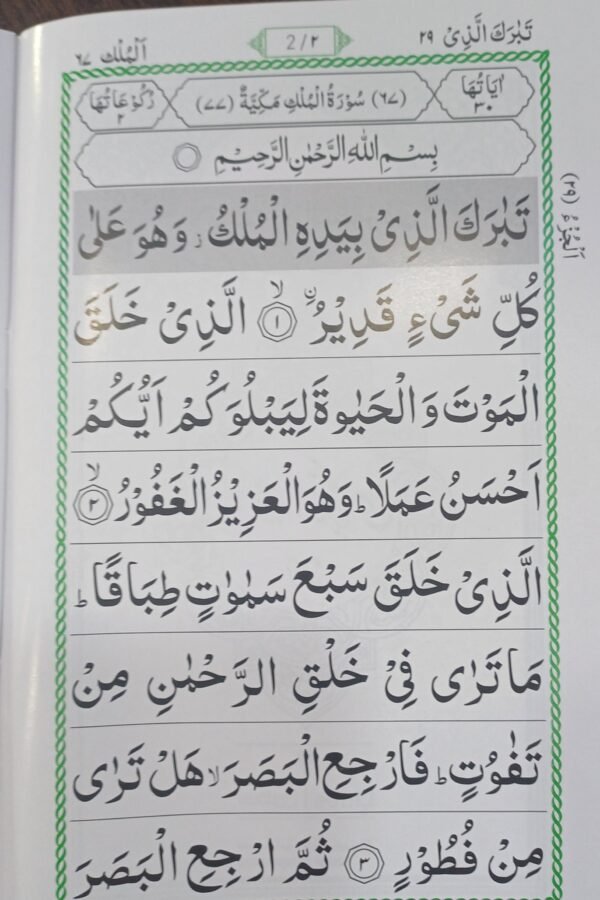 تَبٰرَكَ الَّذِیْ ٢٩ 2/٢ اَلْمُلْك ٦٧
اٰیَاتُهَا ٣٠ (٦٧) سُوْرَةُ الْمُلْكِ مَكِّیَّةٌ (٧٧) رُكُوْعَاتُهَا ٢
بِسْمِ اللّٰهِ الرَّحْمٰنِ الرَّحِیْمِ
اَلْجُزْءُ (٢٩)
تَبٰرَكَ الَّذِیْ بِیَدِهِ الْمُلْكُ ز وَهُوَ عَلٰی
كُلِّ شَیْءٍ قَدِیْرُ ۨ ۙ ١ الَّذِیْ خَلَقَ
الْمَوْتَ وَالْحَیٰوةَ لِیَبْلُوَكُمْ اَیُّكُمْ
اَحْسَنُ عَمَلًا ؕ وَهُوَ الْعَزِیْزُ الْغَفُوْرُ ۙ ٢
الَّذِیْ خَلَقَ سَبْعَ سَمٰوٰتٍ طِبَاقًا ؕ
مَا تَرٰی فِیْ خَلْقِ الرَّحْمٰنِ مِنْ
تَفٰوُتٍ ؕ فَارْجِعِ الْبَصَرَ ۙ هَلْ تَرٰی
مِنْ فُطُوْرٍ ٣ ثُمَّ ارْجِعِ الْبَصَرَ